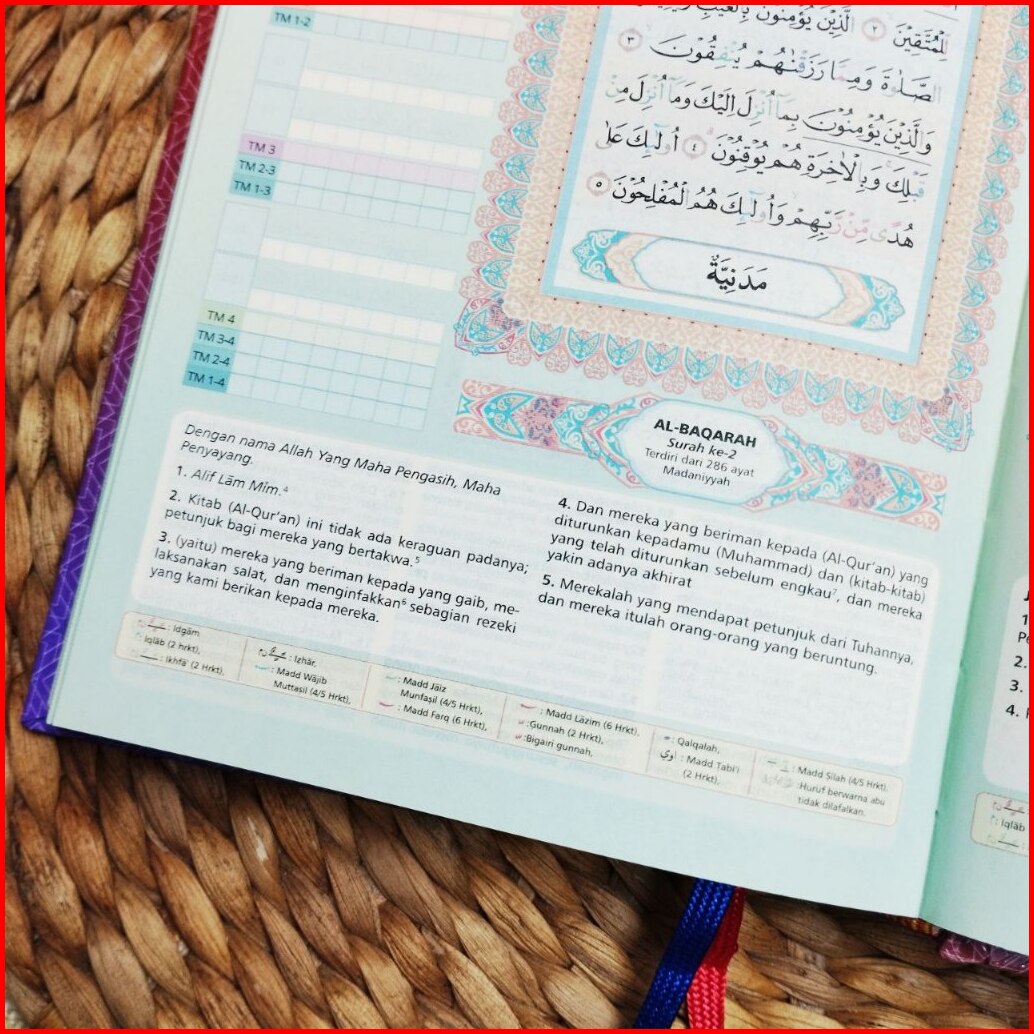 TM 1-2
TM 3
TM 2-3
TM 1-3
TM 4
TM 3-4
TM 2-4
TM 1-4
لِّلْمُتَّقِيْنَ ٢ الَّذِيْنَ يُؤْمِنُوْنَ بِالْغَيْبِ
الصَّلٰوةَ وَمِمَّا رَزَقْنٰهُمْ يُنْفِقُوْنَ ٣
وَالَّذِيْنَ يُؤْمِنُوْنَ بِمَآ اُنْزِلَ اِلَيْكَ وَمَآ اُنْزِلَ مِنْ
قَبْلِكَ وَبِالْاٰخِرَةِ هُمْ يُوْقِنُوْنَ ٤ اُولٰۤىِٕكَ عَلٰى
هُدًى مِّنْ رَّبِّهِمْ وَاُولٰۤىِٕكَ هُمُ الْمُفْلِحُوْنَ ٥
مَدَنِيَّةٌ
AL-BAQARAH
Surah ke-2
Terdiri dari 286 ayat
Madaniyyah
Dengan nama Allah Yang Maha Pengasih, Maha
Penyayang.
1. Alif Lām Mīm.⁴
2. Kitab (Al-Qur'an) ini tidak ada keraguan padanya;
petunjuk bagi mereka yang bertakwa.⁵
3. (yaitu) mereka yang beriman kepada yang gaib, me-
laksanakan salat, dan menginfakkan⁶ sebagian rezeki
yang kami berikan kepada mereka.
4. Dan mereka yang beriman kepada (Al-Qur'an) yang
diturunkan kepadamu (Muhammad) dan (kitab-kitab)
yang telah diturunkan sebelum engkau⁷, dan mereka
yakin adanya akhirat
5. Merekalah yang mendapat petunjuk dari Tuhannya,
dan mereka itulah orang-orang yang beruntung.
: Idgām
: Iqlāb (2 hrkt),
: Ikhfā' (2 Hrkt).
: Izhār,
: Madd Wājib
Muttaṣil (4/5 Hrkt),
: Madd Jāiz
Munfaṣil (4/5 Hrkt),
: Madd Farq (6 Hrkt),
: Madd Lāzim (6 Hrkt).
: Gunnah (2 Hrkt),
: Bigairi gunnah,
: Qalqalah,
اوي : Madd Tabi'i
(2 Hrkt),
: Madd Ṣilah (4/5 Hrkt).
: Huruf berwarna abu
tidak dilafalkan.
1
2.
3.
4.
: Iqlāb